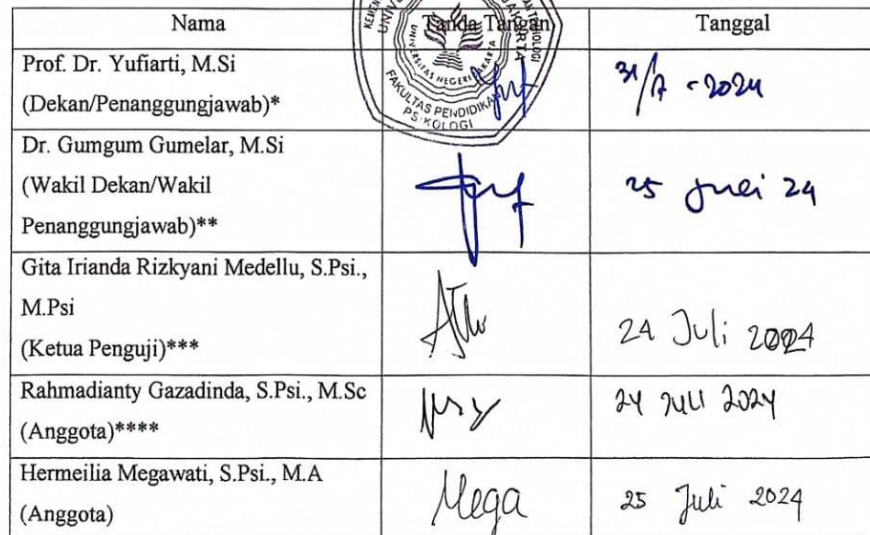 Nama Tanda Tangan Tanggal
Prof. Dr. Yufiarti, M.Si
(Dekan/Penanggungjawab)*
31/7 - 2024
UNIVERSITAS NEGERI JAKARTA
FAKULTAS PENDIDIKAN
PSIKOLOGI
Dr. Gumgum Gumelar, M.Si
(Wakil Dekan/Wakil
Penanggungjawab)**
25 Juli 24
Gita Irianda Rizkyani Medellu, S.Psi.,
M.Psi
(Ketua Penguji)***
24 Juli 2024
Rahmadianty Gazadinda, S.Psi., M.Sc
(Anggota)****
24 JULI 2024
Hermeilia Megawati, S.Psi., M.A
(Anggota)
Mega
25 Juli 2024